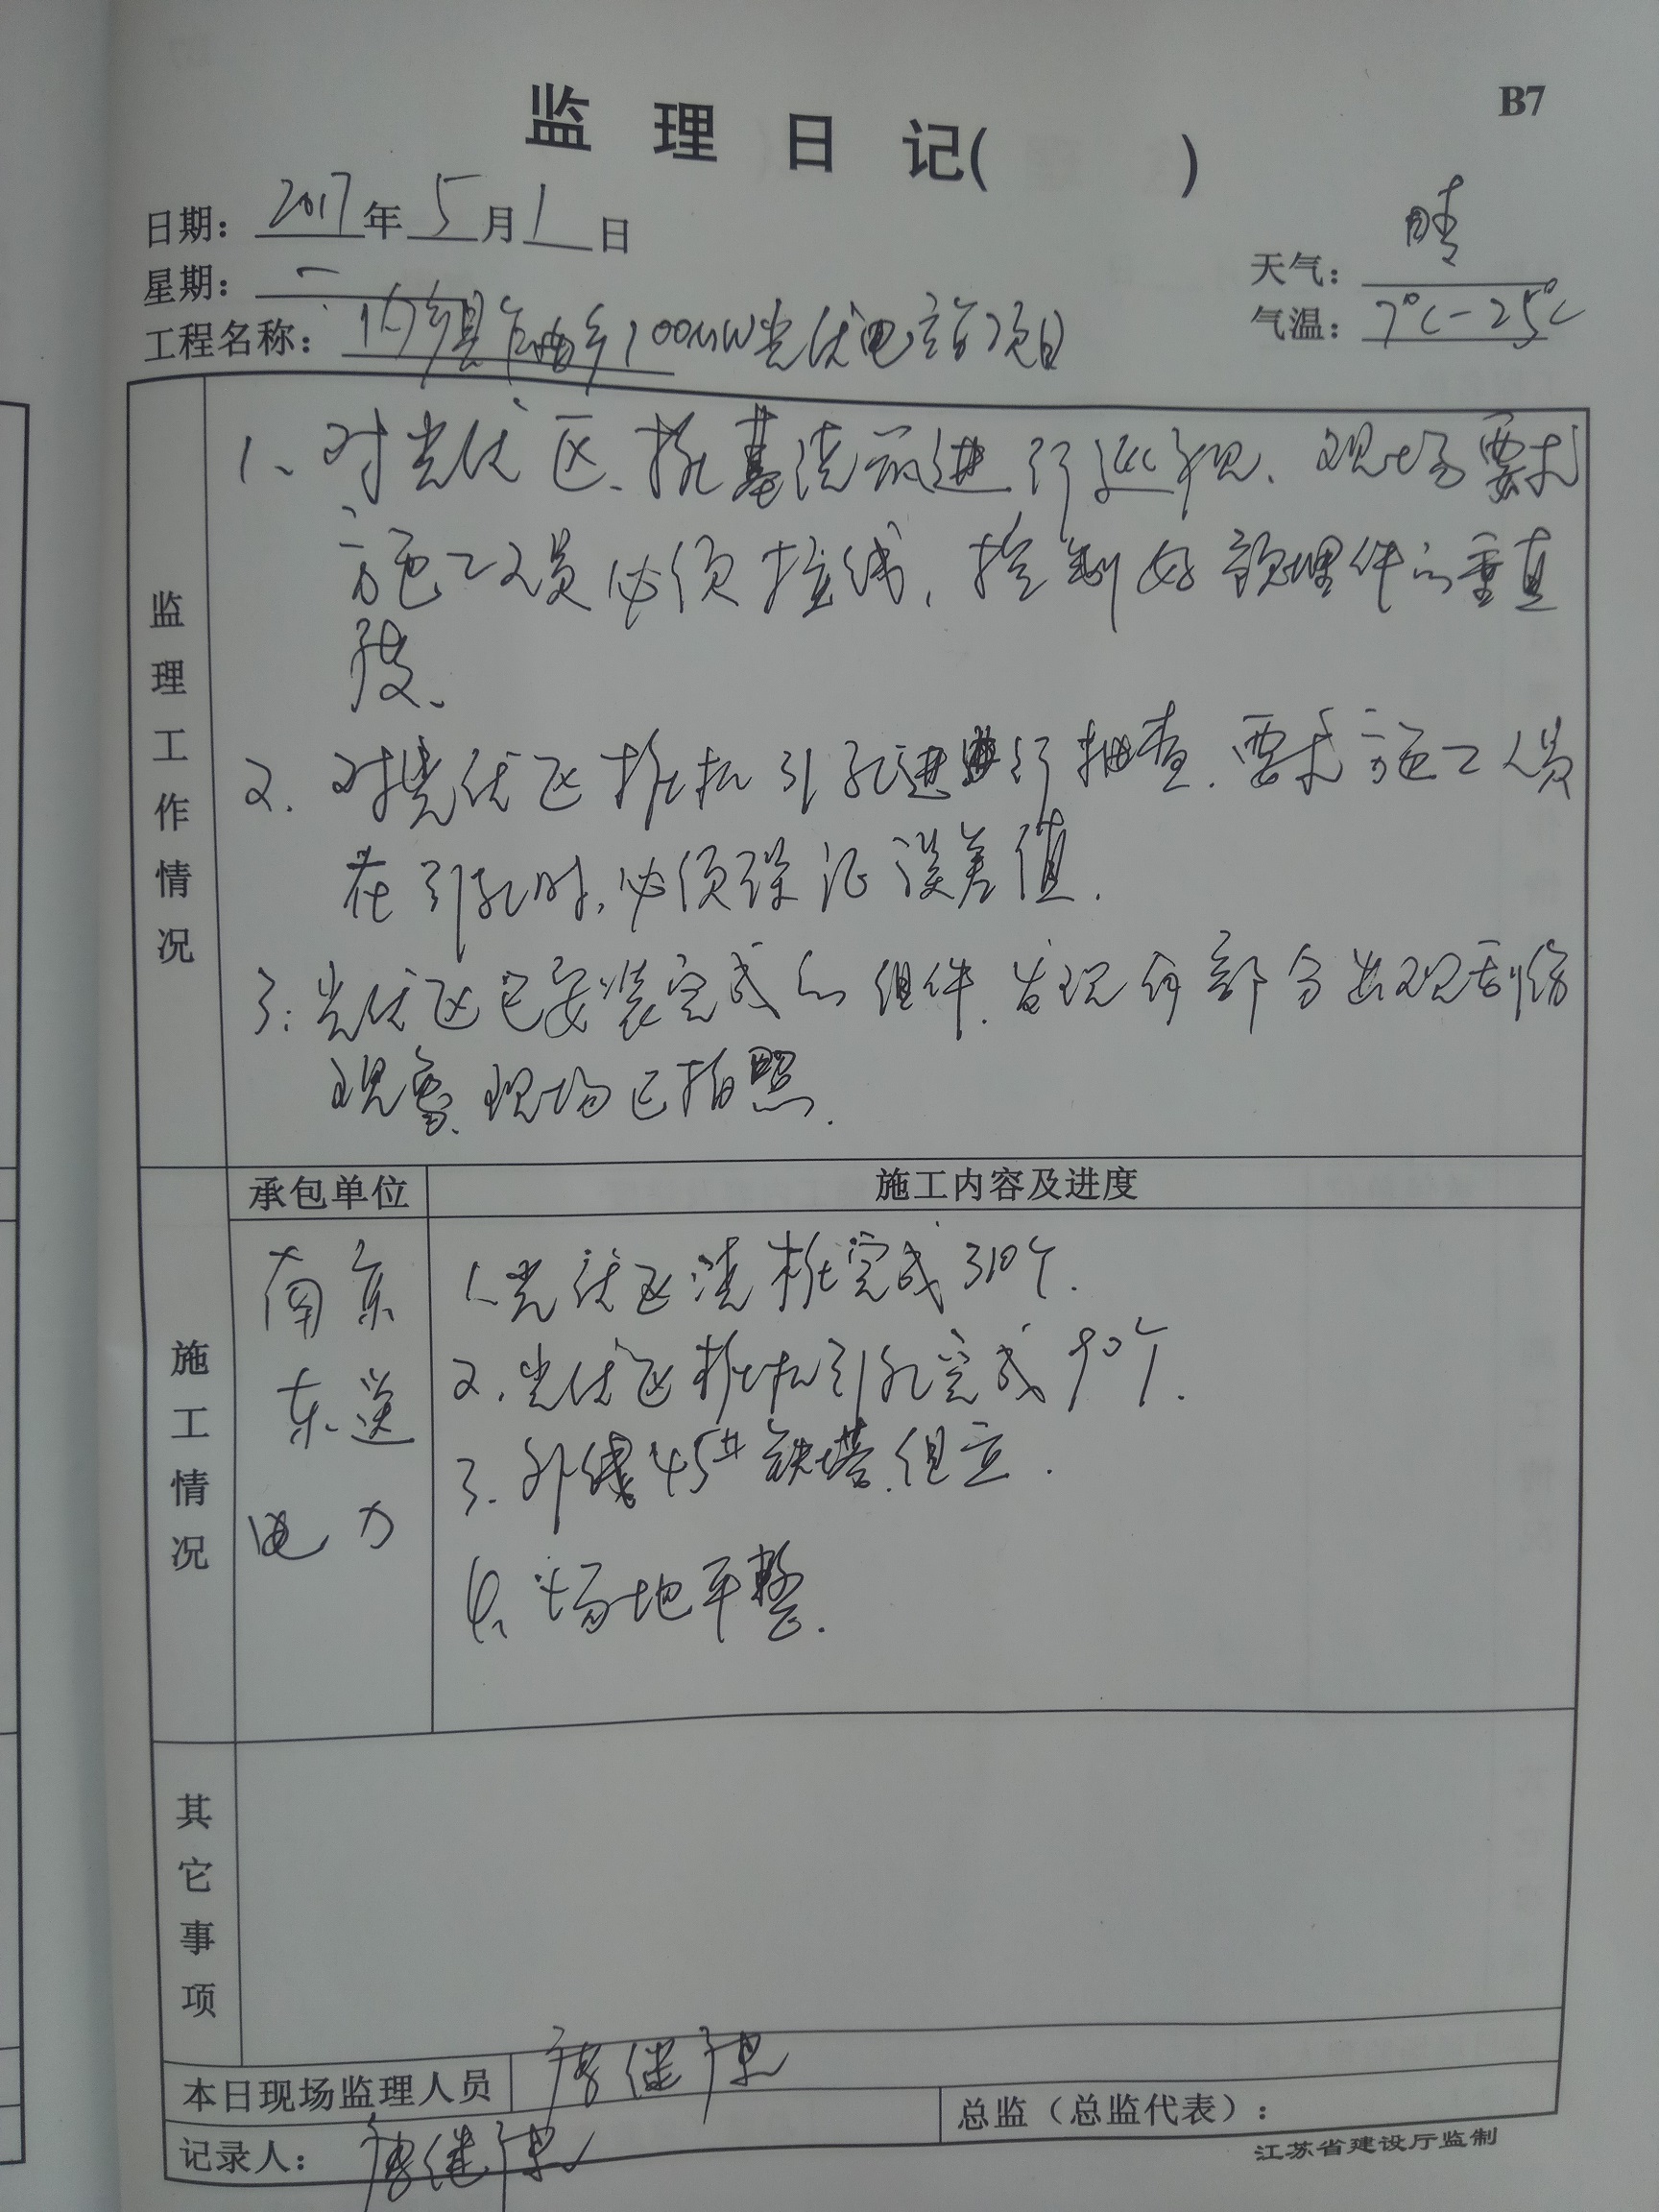 B7
监理日记(      )
日期：2017年5月1日
天气：晴
星期：一
气温：7℃-25℃
工程名称：内乡县乍曲乡100MW光伏电站项目
监理工作情况
1、对光伏区、桩基浇筑进行巡视、现场要求
施工人员必须拉线，控制好预埋件的垂直
度、
2、对光伏区桩机引孔进行抽查，要求施工人员
在引孔时，必须保证误差值．
3：光伏区已安装完成的组件、发现有部分出现刮伤
现象、现场已拍照．
承包单位
施工内容及进度
施工情况
南京
东送
电力
1、光伏区浇桩完成310个．
2、光伏区桩机引孔完成90个．
3、外线45#铁塔组立．
4、场地平整．
其它事项
本日现场监理人员
总监（总监代表）：
记录人：
江苏省建设厅监制